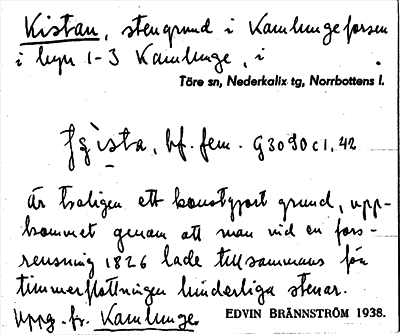 Kistan, stengrund i Kamlungeforsen
i byn 1-3 Kamlunge, i
Töre sn, Nederkalix tg, Norrbottens l.
bf. fem. G3090c1, 42
Är troligen ett konstgjort grund, upp-
kommet genom att man vid en fors-
rensning 1826 lade tillsammans för
timmerflottningen hinderliga stenar.
Uppg. fr. Kamlunge EDVIN BRÄNNSTRÖM 1938.